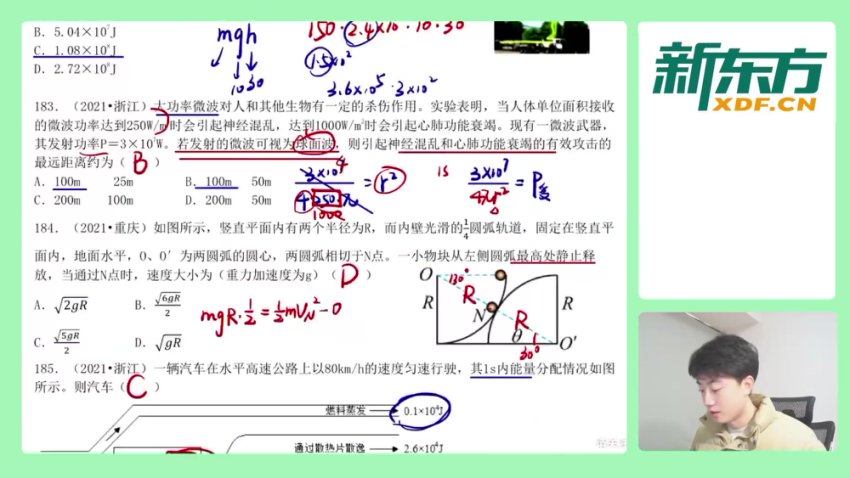 B. 5.04×10⁷J
C. 1.08×10⁸J
D. 2.72×10⁸J
mgh
10 30
150·2.4×10·10·30
1.5×10²
3.6×10⁵·3×10²
新东方
XDF.CN
183. (2021•浙江) 大功率微波对人和其他生物有一定的杀伤作用。实验表明，当人体单位面积接收
的微波功率达到250W/m²时会引起神经混乱，达到1000W/m²时会引起心肺功能衰竭。现有一微波武器，
其发射功率P＝3×10⁷W。若发射的微波可视为球面波，则引起神经混乱和心肺功能衰竭的有效攻击的
最远距离约为（ B ）
A. 100m 25m
B. 100m 50m
C. 200m 100m
D. 200m 50m
3×10⁴
4 250 π
1000
=r²
1s
3×10⁷
4πr²
=P受
184. (2021•重庆) 如图所示，竖直平面内有两个半径为R，而内壁光滑的1/4圆弧轨道，固定在竖直平
面内，地面水平，O、O′为两圆弧的圆心，两圆弧相切于N点。一小物块从左侧圆弧最高处静止释
放，当通过N点时，速度大小为（重力加速度为g）（ D ）
A. √2gR
B. √6gR/2
C. √5gR/2
D. √gR
mgR·1/2=1/2mV_N²-0
O
30°
R
R
N
R
R
θ
30°
O′
185. (2021•浙江) 一辆汽车在水平高速公路上以80km/h的速度匀速行驶，其1s内能量分配情况如图
所示。则汽车（ C ）
燃料蒸发
0.1×10⁴J
通过散热片散逸
2.6×10⁴J